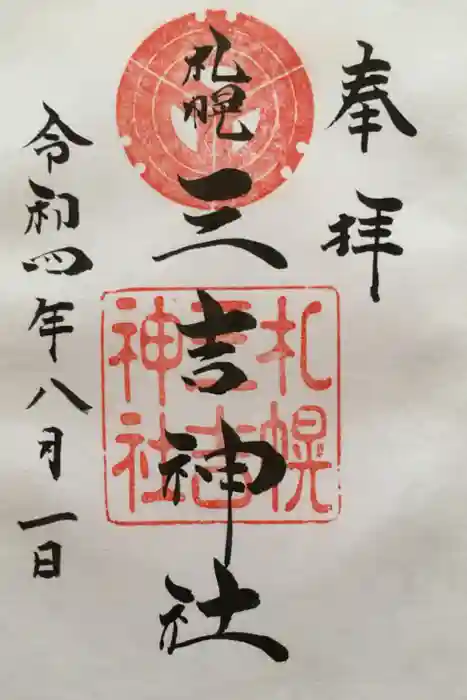 奉拝
札幌
三吉神社
令和四年八月一日
札幌
三吉
神社